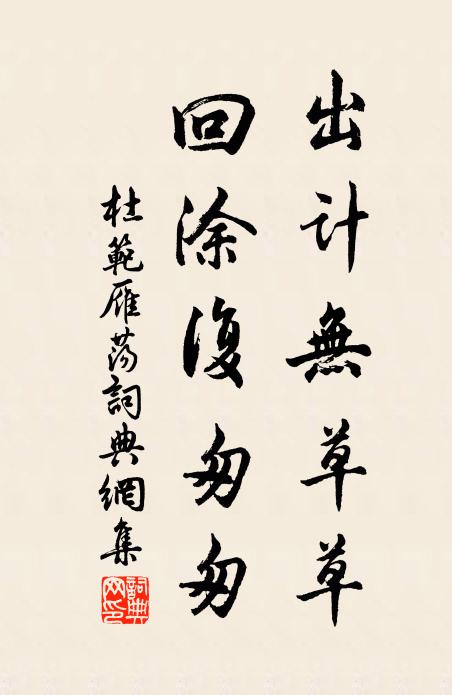 出计無草草
回涂復匆匆
杜範雁荡詞典網集
詞典
网印